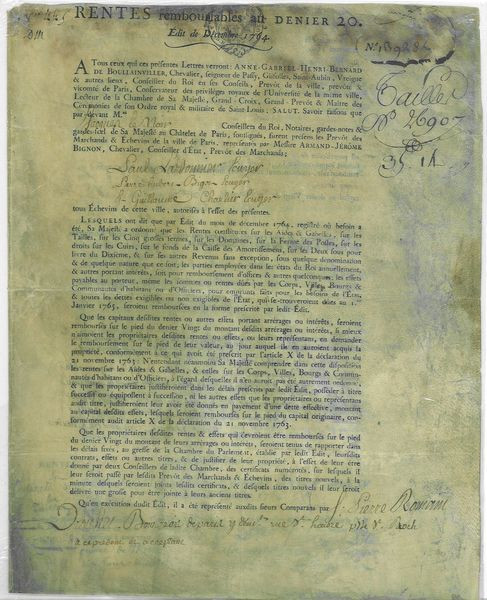 RENTES remboursables au DENIER 20.
Edit de Décembre 1764.
N.° 13928
Taille
N.° 2690
A Tous ceux qui ces présentes Lettres verront: ANNE-GABRIEL-HENRI-BERNARD
DE BOULLAINVILLER, Chevalier, seigneur de Passy, Glisolles, Saint-Aubin,
& autres lieux, Conseiller du Roi en ses Conseils, Prévôt de la ville, prévôté &
vicomté de Paris, Conservateur des priviléges royaux de l'Université de la même ville,
Lecteur de la Chambre de Sa Majesté, Grand-Croix, Grand-Prévôt & Maître des
Cérémonies de son Ordre royal & militaire de Saint-Louis; SALUT. Savoir faisons que
par-devant M.es
Conseillers du Roi, Notaires, gardes-notes &
gardes-scel de Sa Majesté au Châtelet de Paris, soussignés, furent présens les Prévôt des
Marchands & Échevins de la ville de Paris, représentés par Messire ARMAND-JÉRÔME
BIGNON, Chevalier, Conseiller d'État, Prévôt des Marchands;
tous Échevins de cette ville, autorisés à l'effet des présentes.
LESQUELS ont dit que par Édit du mois de décembre 1764, registré où besoin a
été, Sa Majesté a ordonné que les Rentes constituées sur les Aides & Gabelles, sur les
Tailles, sur les Cinq grosses fermes, sur les Domaines, sur la Ferme des Postes, sur les
droits sur les Cuirs, sur le fonds de la Caisse des Amortissemens, sur les Deux sous pour
livre du Dixième, & sur ses autres Revenus sans exception, sous quelque dénomination
& de quelque nature que ce soit; les parties employées dans les états du Roi annuellement,
& autres portant intérêts, soit pour remboursement d'offices & autres quelconques; les effets
payables au porteur, même les sommes ou rentes dûes par les Corps, Villes, Bourgs &
Communautés d'habitans ou d'Officiers, pour emprunts faits pour les besoins de l'État,
& toutes les dettes exigibles ou non exigibles de l'État, qui se trouveroient dûes au 1.er
Janvier 1765, seroient remboursées en la forme prescrite par ledit Édit.
Que les capitaux desdites rentes ou autres effets portant arrérages ou intérêts, seroient
remboursés sur le pied du denier Vingt du montant desdits arrérages ou intérêts, si mieux
n'aimoient les propriétaires desdites rentes ou effets, ou leurs représentans, en demander
le remboursement sur le pied de leur valeur, au jour auquel ils en auroient acquis la
propriété, conformément à ce qui avoit été prescrit par l'article X de la déclaration du
21 novembre 1763: N'entendant néanmoins Sa Majesté comprendre dans cette disposition
les rentes sur les Aides & Gabelles, & celles sur les Corps, Villes, Bourgs & Commu-
nautés d'habitans ou d'Officiers, à l'égard desquelles il n'en auroit pas été autrement ordonné,
& que les propriétaires justifieroient dans les délais prescrits par ledit Édit, posséder à titre
successif ou équipollent à successif, ni les autres effets que les propriétaires ou représentans
audit titre, justifieroient leur avoir été donnés en payement d'une dette effective, montant
au capital desdits effets, lesquels seroient remboursés sur le pied du capital originaire, con-
formément audit article X de la déclaration du 21 novembre 1763.
Que les propriétaires desdites rentes & effets qui devroient être remboursés sur le pied
du denier Vingt du montant de leurs arrérages ou intérêts, seroient tenus de rapporter dans
les délais fixés, au greffe de la Chambre du Parlement, établie par ledit Édit, leursdits
contrats, effets ou autres titres, & de justifier de leur propriété, à l'effet de leur être
donné par deux Conseillers de ladite Chambre, des certificats numérotés, sur lesquels il
leur seroit passé par lesdits Prévôt des Marchands & Échevins, des titres nouvels, à la
minute desquels seroient joints lesdits certificats, & desquels titres nouvels il leur seroit
délivré une grosse pour être jointe à leurs anciens titres.
Qu'en exécution dudit Édit, il a été représenté auxdits sieurs Comparans par S.r Pierre Romain